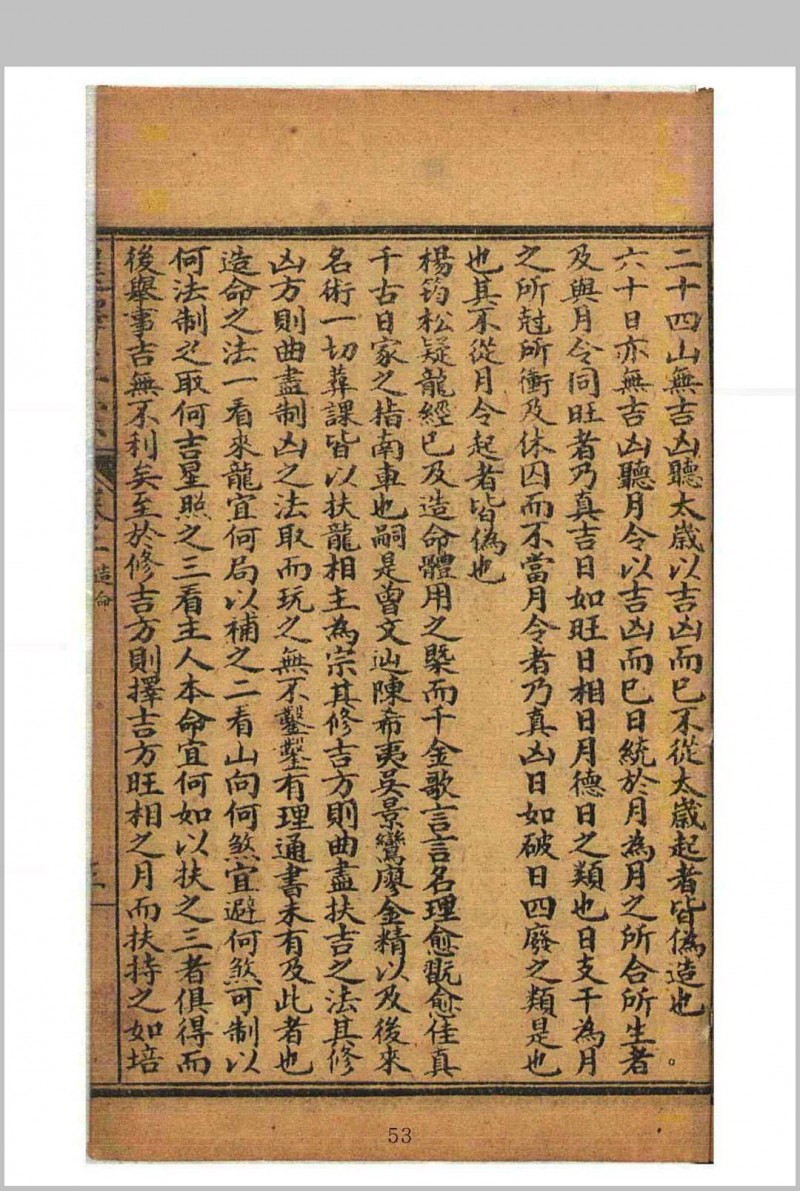 二十四山無吉凶聽太歲以吉凶而已不從太歲起者皆偽造也。
六十日亦無吉凶聽月令以吉凶而已日統於月為月之所合所生者
及與月令同旺者乃真吉日如旺日相日月德日之類也日支干為月
之所尅所衝及休囚而不當月令者乃真凶日如破日四廢之類是也
也其不從月令起者皆偽也
楊筠松疑龍經已及造命體用之槩而千金歌言言名理愈翫愈佳真
千古日家之指南車也嗣是曾文辿陳希夷吳景鸞廖金精以及後來
名術一切葬課皆以扶龍相主為宗其修吉方則曲盡扶吉之法其修
凶方則曲盡制凶之法取而玩之無不鑿鑿有理通書未有及此者也
造命之法一看來龍宜何局以補之二看山向何煞宜避何煞可制以
何法制之取何吉星照之三看主人本命宜何如以扶之三者俱得而
後舉事吉無不利矣至於修吉方則擇吉方旺相之月而扶持之如培
造命
三
53